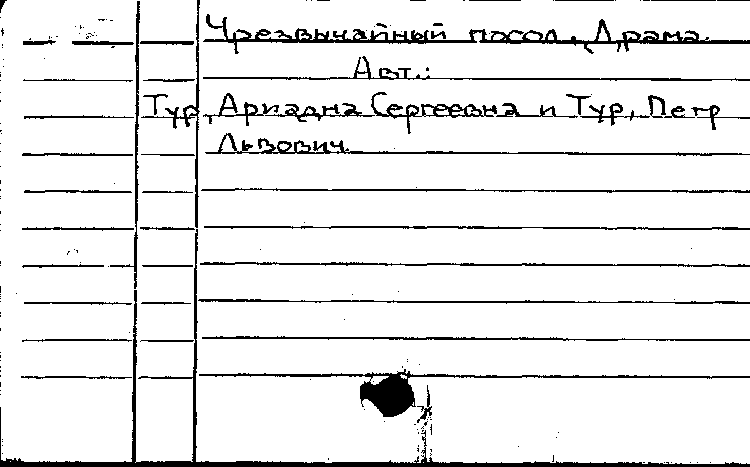 Чрезвычайный посол. Драма.
Авт.:
Тур, Ариадна Сергеевна и Тур, Петр
Львович.